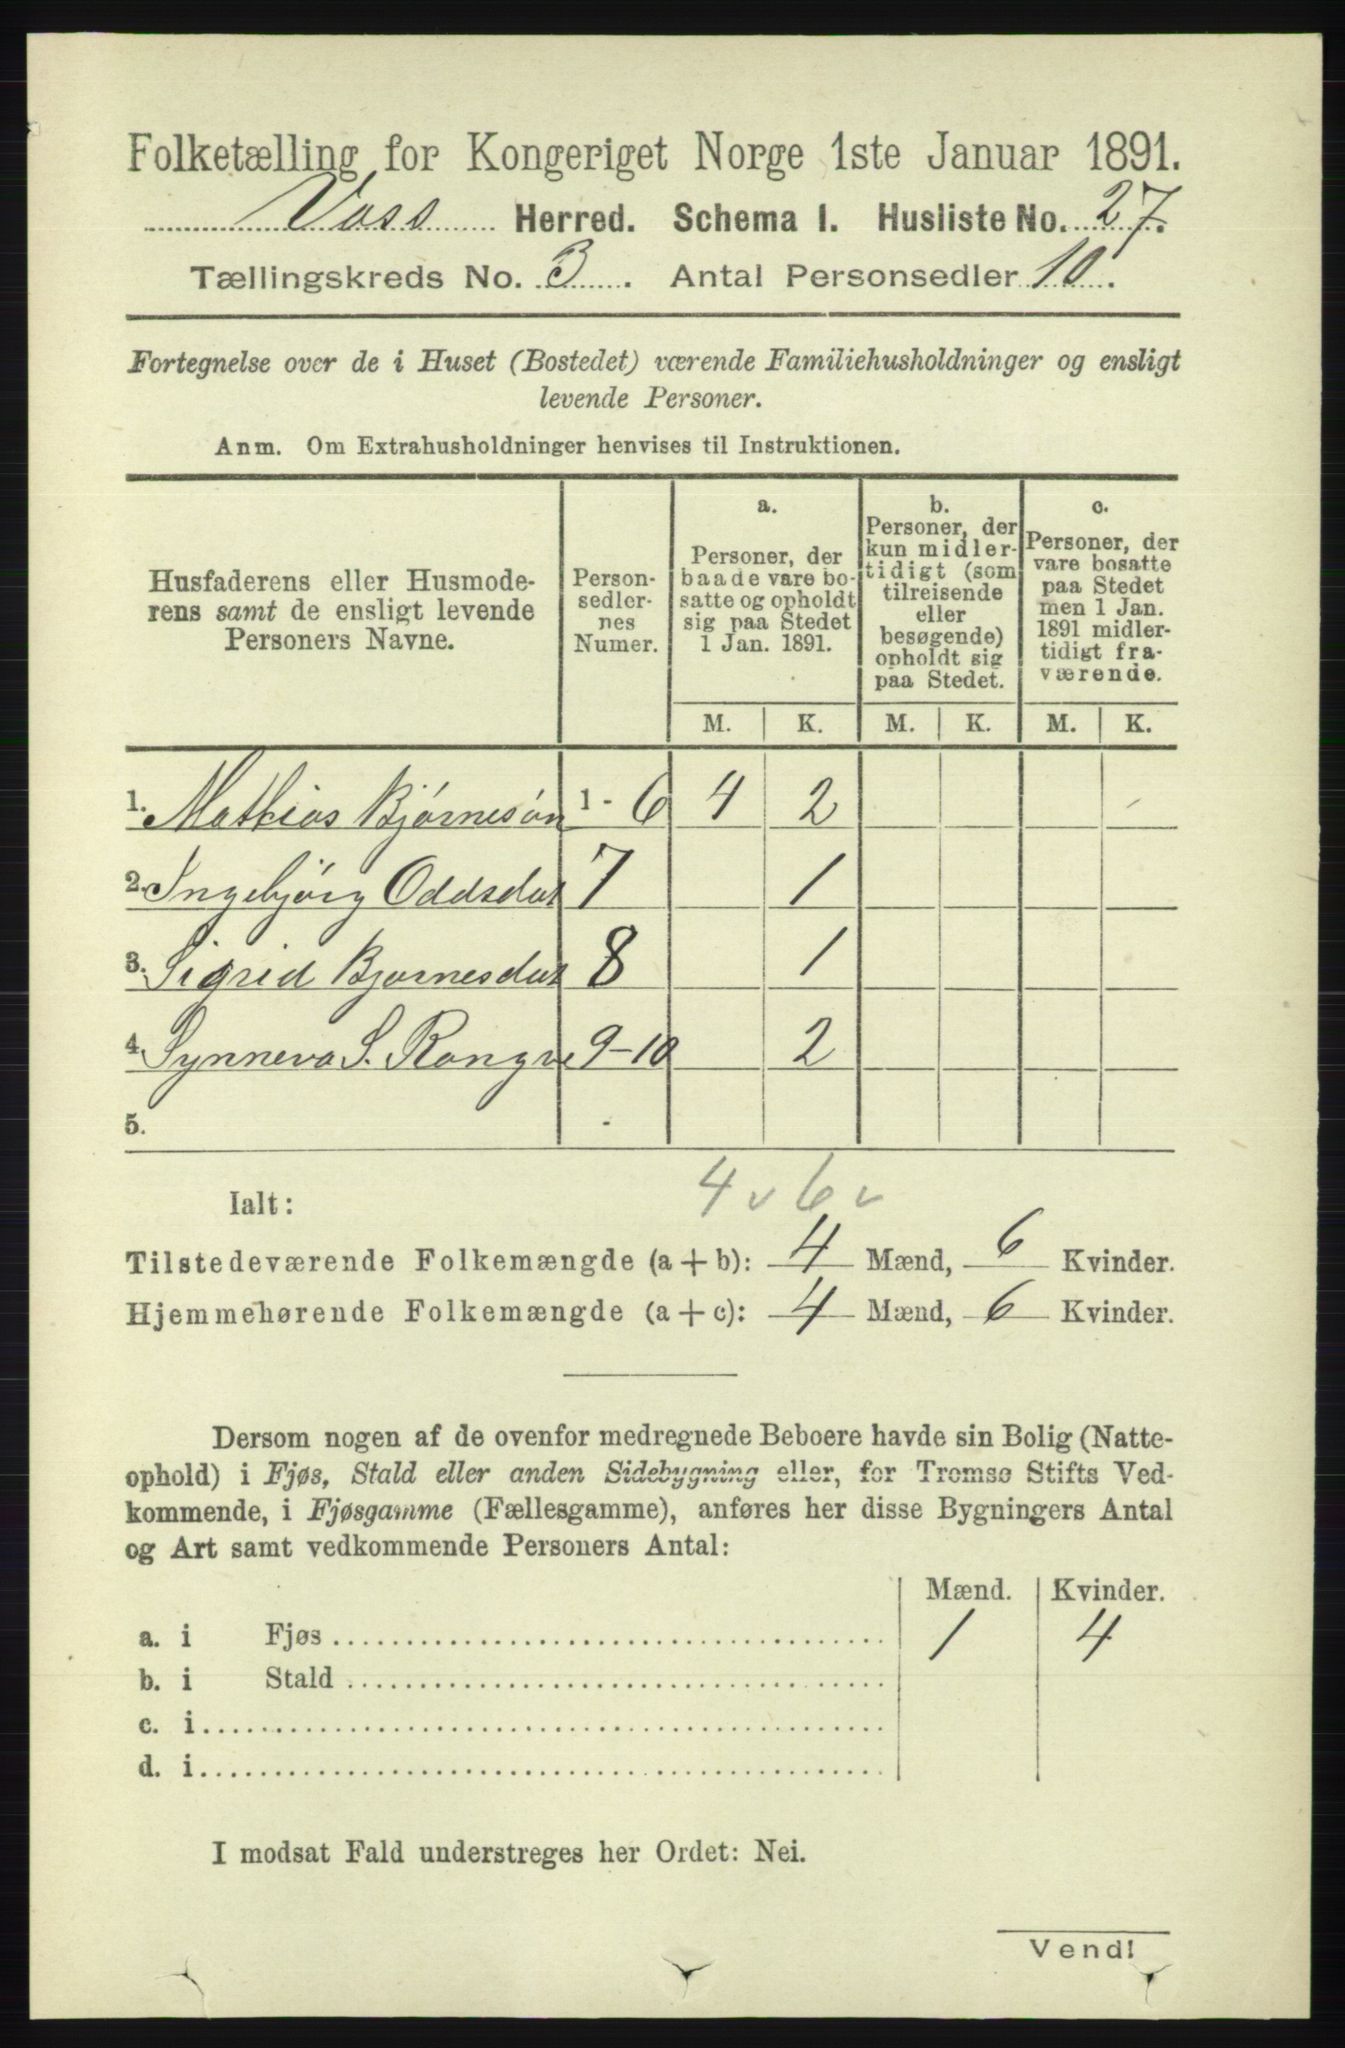 Folketælling for Kongeriget Norge 1ste Januar 1891.
Voss Herred. Schema I. Husliste No. 27.
Tællingskreds No. 3. Antal Personsedler 10.
Fortegnelse over de i Huset (Bostedet) værende Familiehusholdninger og ensligt
levende Personer.
Anm. Om Extrahusholdninger henvises til Instruktionen.
Husfaderens eller Husmode-
rens samt de ensligt levende
Personers Navne.
Person-
sedler-
nes
Numer.
a.
Personer, der
baade vare bo-
satte og opholdt
sig paa Stedet
1 Jan. 1891.
b.
Personer, der
kun midler-
tidigt (som
tilreisende
eller
besøgende)
opholdt sig
paa Stedet.
c.
Personer, der
vare bosatte
paa Stedet
men 1 Jan.
1891 midler-
tidigt fra-
værende.
M. K. M. K. M. K.
1. Mathias Bjørnesøn 1 - 6 4 2
2. Ingebjørg Oddsdat 7 1
3. Sigrid Bjørnesdat 8 1
4. Synneva S. Rongve 9-10 2
5.
4 v 6 v
Ialt:
Tilstedeværende Folkemængde (a + b): 4 Mænd, 6 Kvinder.
Hjemmehørende Folkemængde (a + c): 4 Mænd, 6 Kvinder.
Dersom nogen af de ovenfor medregnede Beboere havde sin Bolig (Natte-
ophold) i Fjøs, Stald eller anden Sidebygning eller, for Tromsø Stifts Ved-
kommende, i Fjøsgamme (Fællesgamme), anføres her disse Bygningers Antal
og Art samt vedkommende Personers Antal:
Mænd. Kvinder.
a. i Fjøs 1 4
b. i Stald
c. i
d. i
I modsat Fald understreges her Ordet: Nei.
Vend!